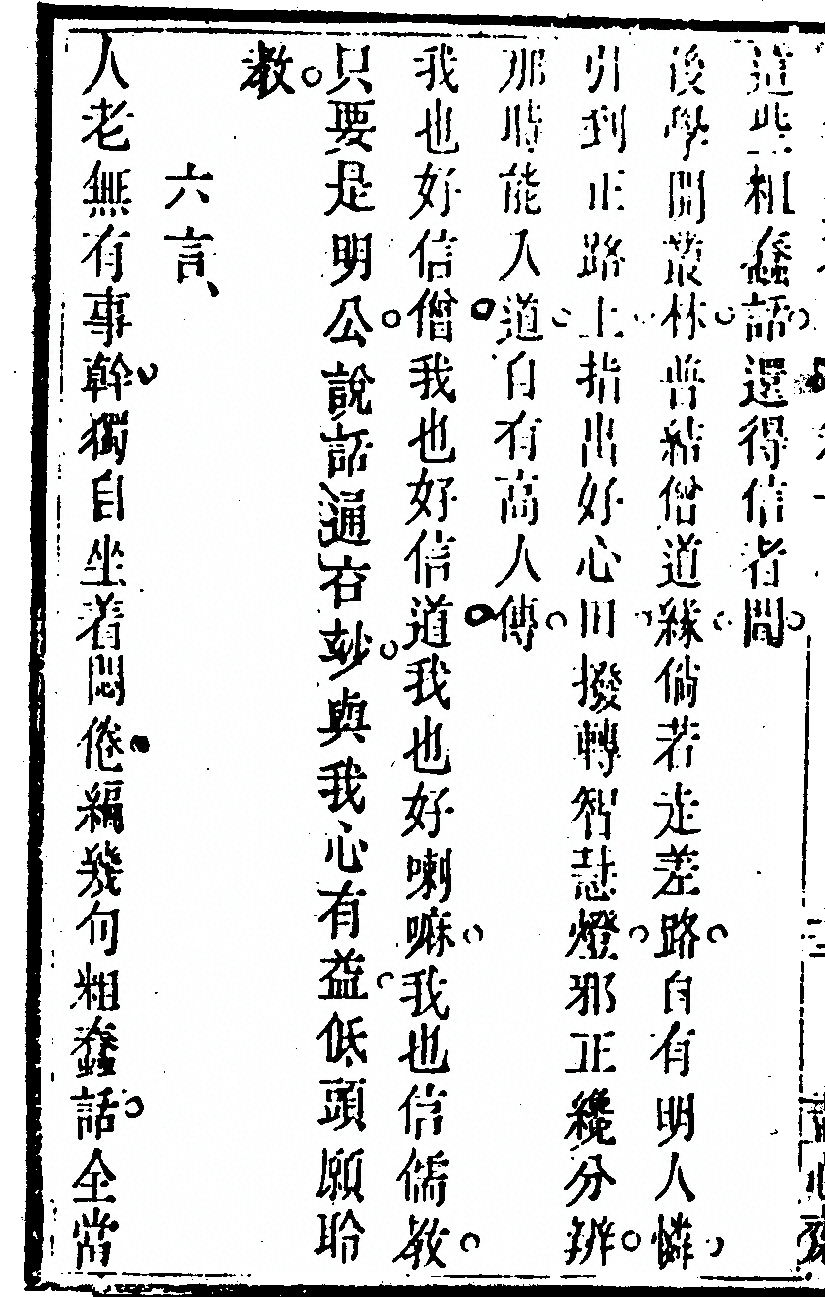 這些粗蠢話。還得信者聞。
後學開叢林。普結僧道緣。倘若走差路。自有明人憐。
引到正路上。指出好心田。撥轉智慧燈。邪正纔分辨。
那時能入道。自有高人傳。
我也好信僧。我也好信道。我也好喇嘛。我也信儒教。
只要是明公。說話通玄妙。與我心有益。低頭願聆
教。
六言、
人老無有事幹。獨自坐着悶倦。編幾句粗蠢話。全當